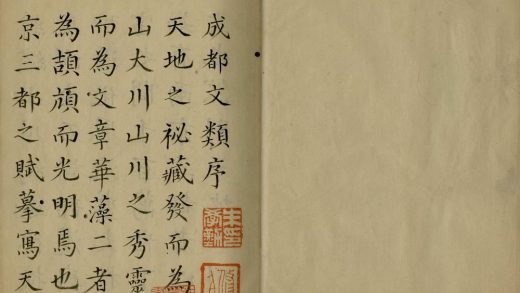 成都文類序
天地之祕藏發而為
山大川山川之秀靈
而為文章華藻二者
為頡頏而光明焉也
京三都之賦摹寫天